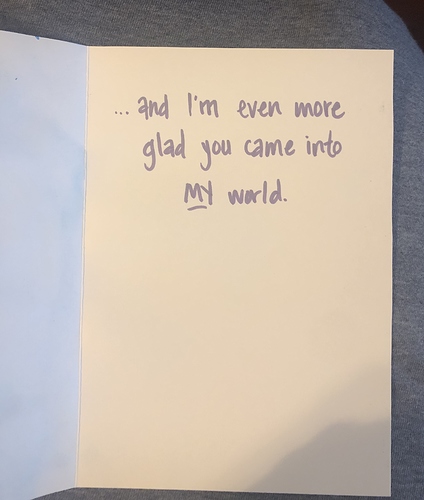 ... and I'm even more
glad you came into
MY world.